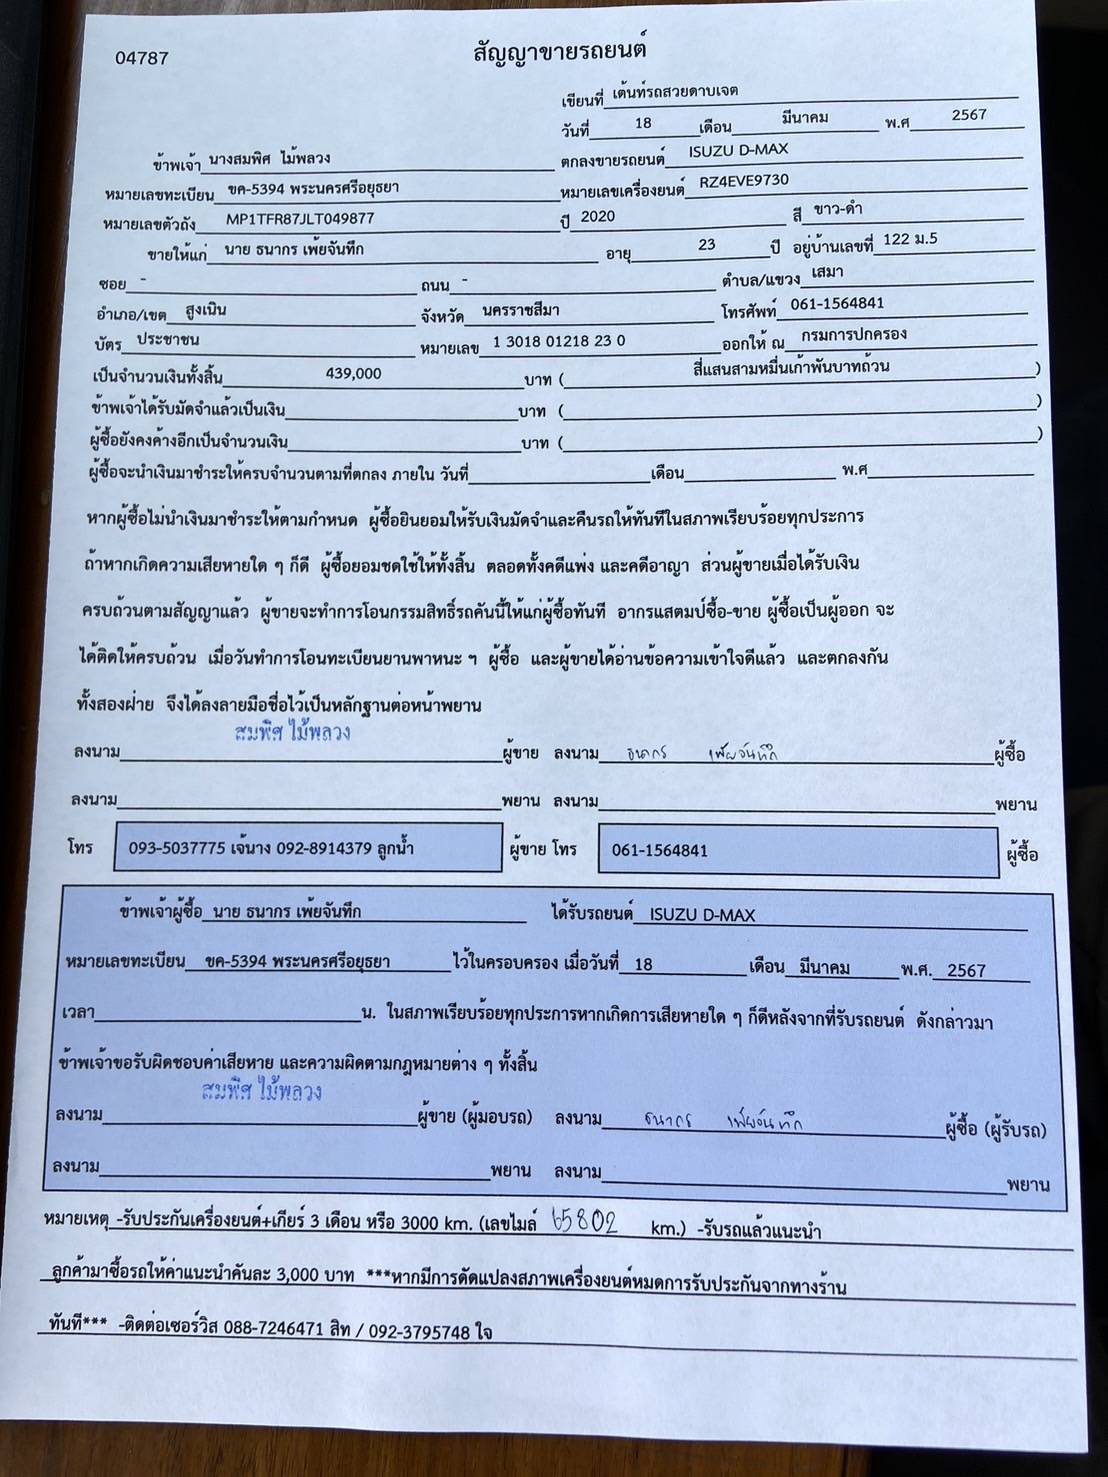 04787
สัญญาขายรถยนต์
เขียนที่ เต้นท์รถสวยดาบเจต
วันที่ 18 เดือน มีนาคม พ.ศ 2567
ข้าพเจ้า นางสมพิศ ไม้พลวง ตกลงขายรถยนต์ ISUZU D-MAX
หมายเลขทะเบียน ขค-5394 พระนครศรีอยุธยา หมายเลขเครื่องยนต์ RZ4EVE9730
หมายเลขตัวถัง MP1TFR87JLT049877 ปี 2020 สี ขาว-ดำ
ขายให้แก่ นาย ธนากร เพ้ยจันทึก อายุ 23 ปี อยู่บ้านเลขที่ 122 ม.5
ซอย - ถนน - ตำบล/แขวง เสมา
อำเภอ/เขต สูงเนิน จังหวัด นครราชสีมา โทรศัพท์ 061-1564841
บัตร ประชาชน หมายเลข 1 3018 01218 23 0 ออกให้ ณ กรมการปกครอง
เป็นจำนวนเงินทั้งสิ้น 439,000 บาท ( สี่แสนสามหมื่นเก้าพันบาทถ้วน )
ข้าพเจ้าได้รับมัดจำแล้วเป็นเงิน บาท ( )
ผู้ซื้อยังคงค้างอีกเป็นจำนวนเงิน บาท ( )
ผู้ซื้อจะนำเงินมาชำระให้ครบจำนวนตามที่ตกลง ภายใน วันที่ เดือน พ.ศ
หากผู้ซื้อไม่นำเงินมาชำระให้ตามกำหนด ผู้ซื้อยินยอมให้รับเงินมัดจำและคืนรถให้ทันทีในสภาพเรียบร้อยทุกประการ
ถ้าหากเกิดความเสียหายใด ๆ ก็ดี ผู้ซื้อยอมชดใช้ให้ทั้งสิ้น ตลอดทั้งคดีแพ่ง และคดีอาญา ส่วนผู้ขายเมื่อได้รับเงิน
ครบถ้วนตามสัญญาแล้ว ผู้ขายจะทำการโอนกรรมสิทธิ์รถคันนี้ให้แก่ผู้ซื้อทันที อากรแสตมป์ซื้อ-ขาย ผู้ซื้อเป็นผู้ออก จะ
ได้ติดให้ครบถ้วน เมื่อวันทำการโอนทะเบียนยานพาหนะ ฯ ผู้ซื้อ และผู้ขายได้อ่านข้อความเข้าใจดีแล้ว และตกลงกัน
ทั้งสองฝ่าย จึงได้ลงลายมือชื่อไว้เป็นหลักฐานต่อหน้าพยาน
ลงนาม สมพิศ ไม้พลวง ผู้ขาย ลงนาม ธนากร เพ้ยจันทึก ผู้ซื้อ
ลงนาม พยาน ลงนาม พยาน
โทร 093-5037775 เจ้นาง 092-8914379 ลูกน้ำ ผู้ขาย โทร 061-1564841 ผู้ซื้อ
ข้าพเจ้าผู้ซื้อ นาย ธนากร เพ้ยจันทึก ได้รับรถยนต์ ISUZU D-MAX
หมายเลขทะเบียน ขค-5394 พระนครศรีอยุธยา ไว้ในครอบครอง เมื่อวันที่ 18 เดือน มีนาคม พ.ศ. 2567
เวลา น. ในสภาพเรียบร้อยทุกประการหากเกิดการเสียหายใด ๆ ก็ดีหลังจากที่รับรถยนต์ ดังกล่าวมา
ข้าพเจ้าขอรับผิดชอบค่าเสียหาย และความผิดตามกฎหมายต่าง ๆ ทั้งสิ้น
ลงนาม สมพิศ ไม้พลวง ผู้ขาย (ผู้มอบรถ) ลงนาม ธนากร เพ้ยจันทึก ผู้ซื้อ (ผู้รับรถ)
ลงนาม พยาน ลงนาม พยาน
หมายเหตุ -รับประกันเครื่องยนต์+เกียร์ 3 เดือน หรือ 3000 km. (เลขไมล์ 65802 km.) -รับรถแล้วแนะนำ
ลูกค้ามาซื้อรถให้ค่าแนะนำคันละ 3,000 บาท ***หากมีการดัดแปลงสภาพเครื่องยนต์หมดการรับประกันจากทางร้าน
ทันที*** -ติดต่อเซอร์วิส 088-7246471 สิท / 092-3795748 ใจ